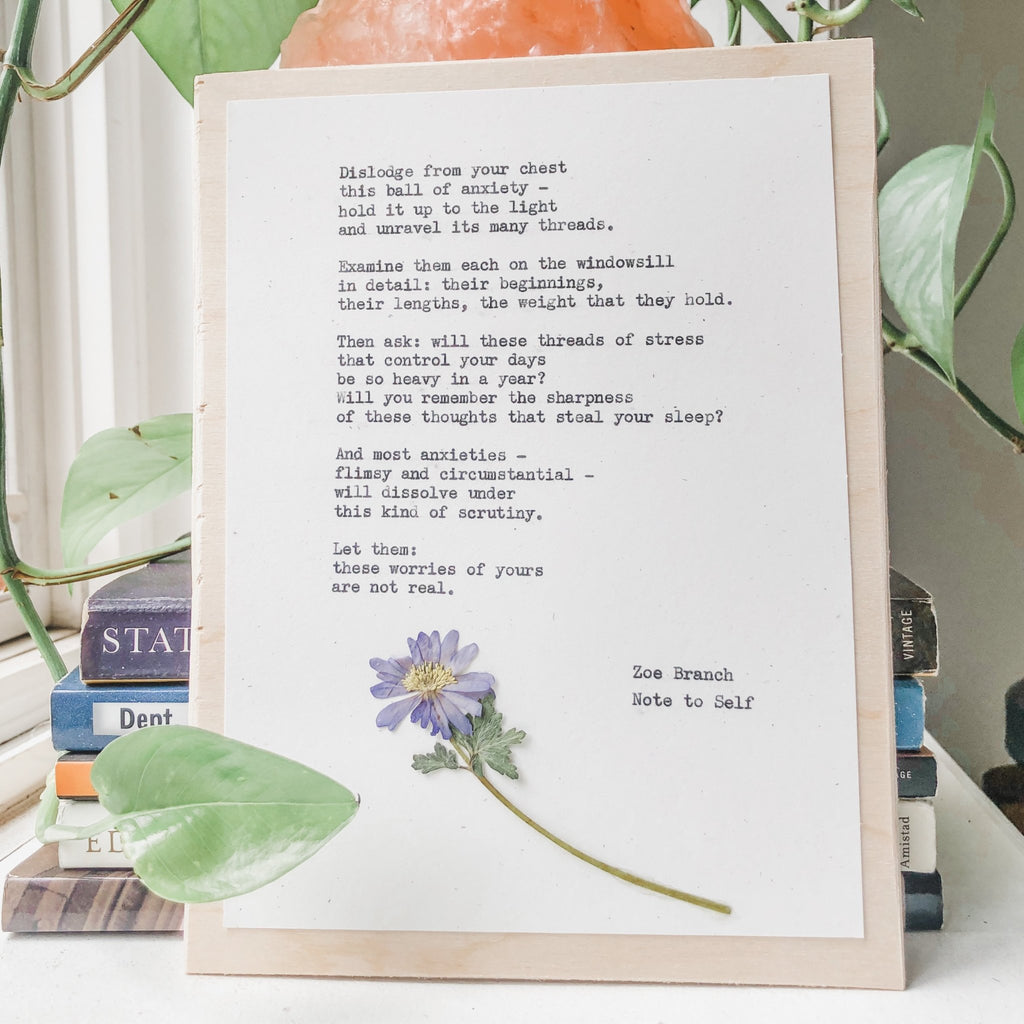 Dislodge from your chest
this ball of anxiety –
hold it up to the light
and unravel its many threads.
Examine them each on the windowsill
in detail: their beginnings,
their lengths, the weight that they hold.
Then ask: will these threads of stress
that control your days
be so heavy in a year?
Will you remember the sharpness
of these thoughts that steal your sleep?
And most anxieties –
flimsy and circumstantial –
will dissolve under
this kind of scrutiny.
Let them:
these worries of yours
are not real.
Zoe Branch
Note to Self
STAT
Dept
ED
VINTAGE
AGE
Amistad